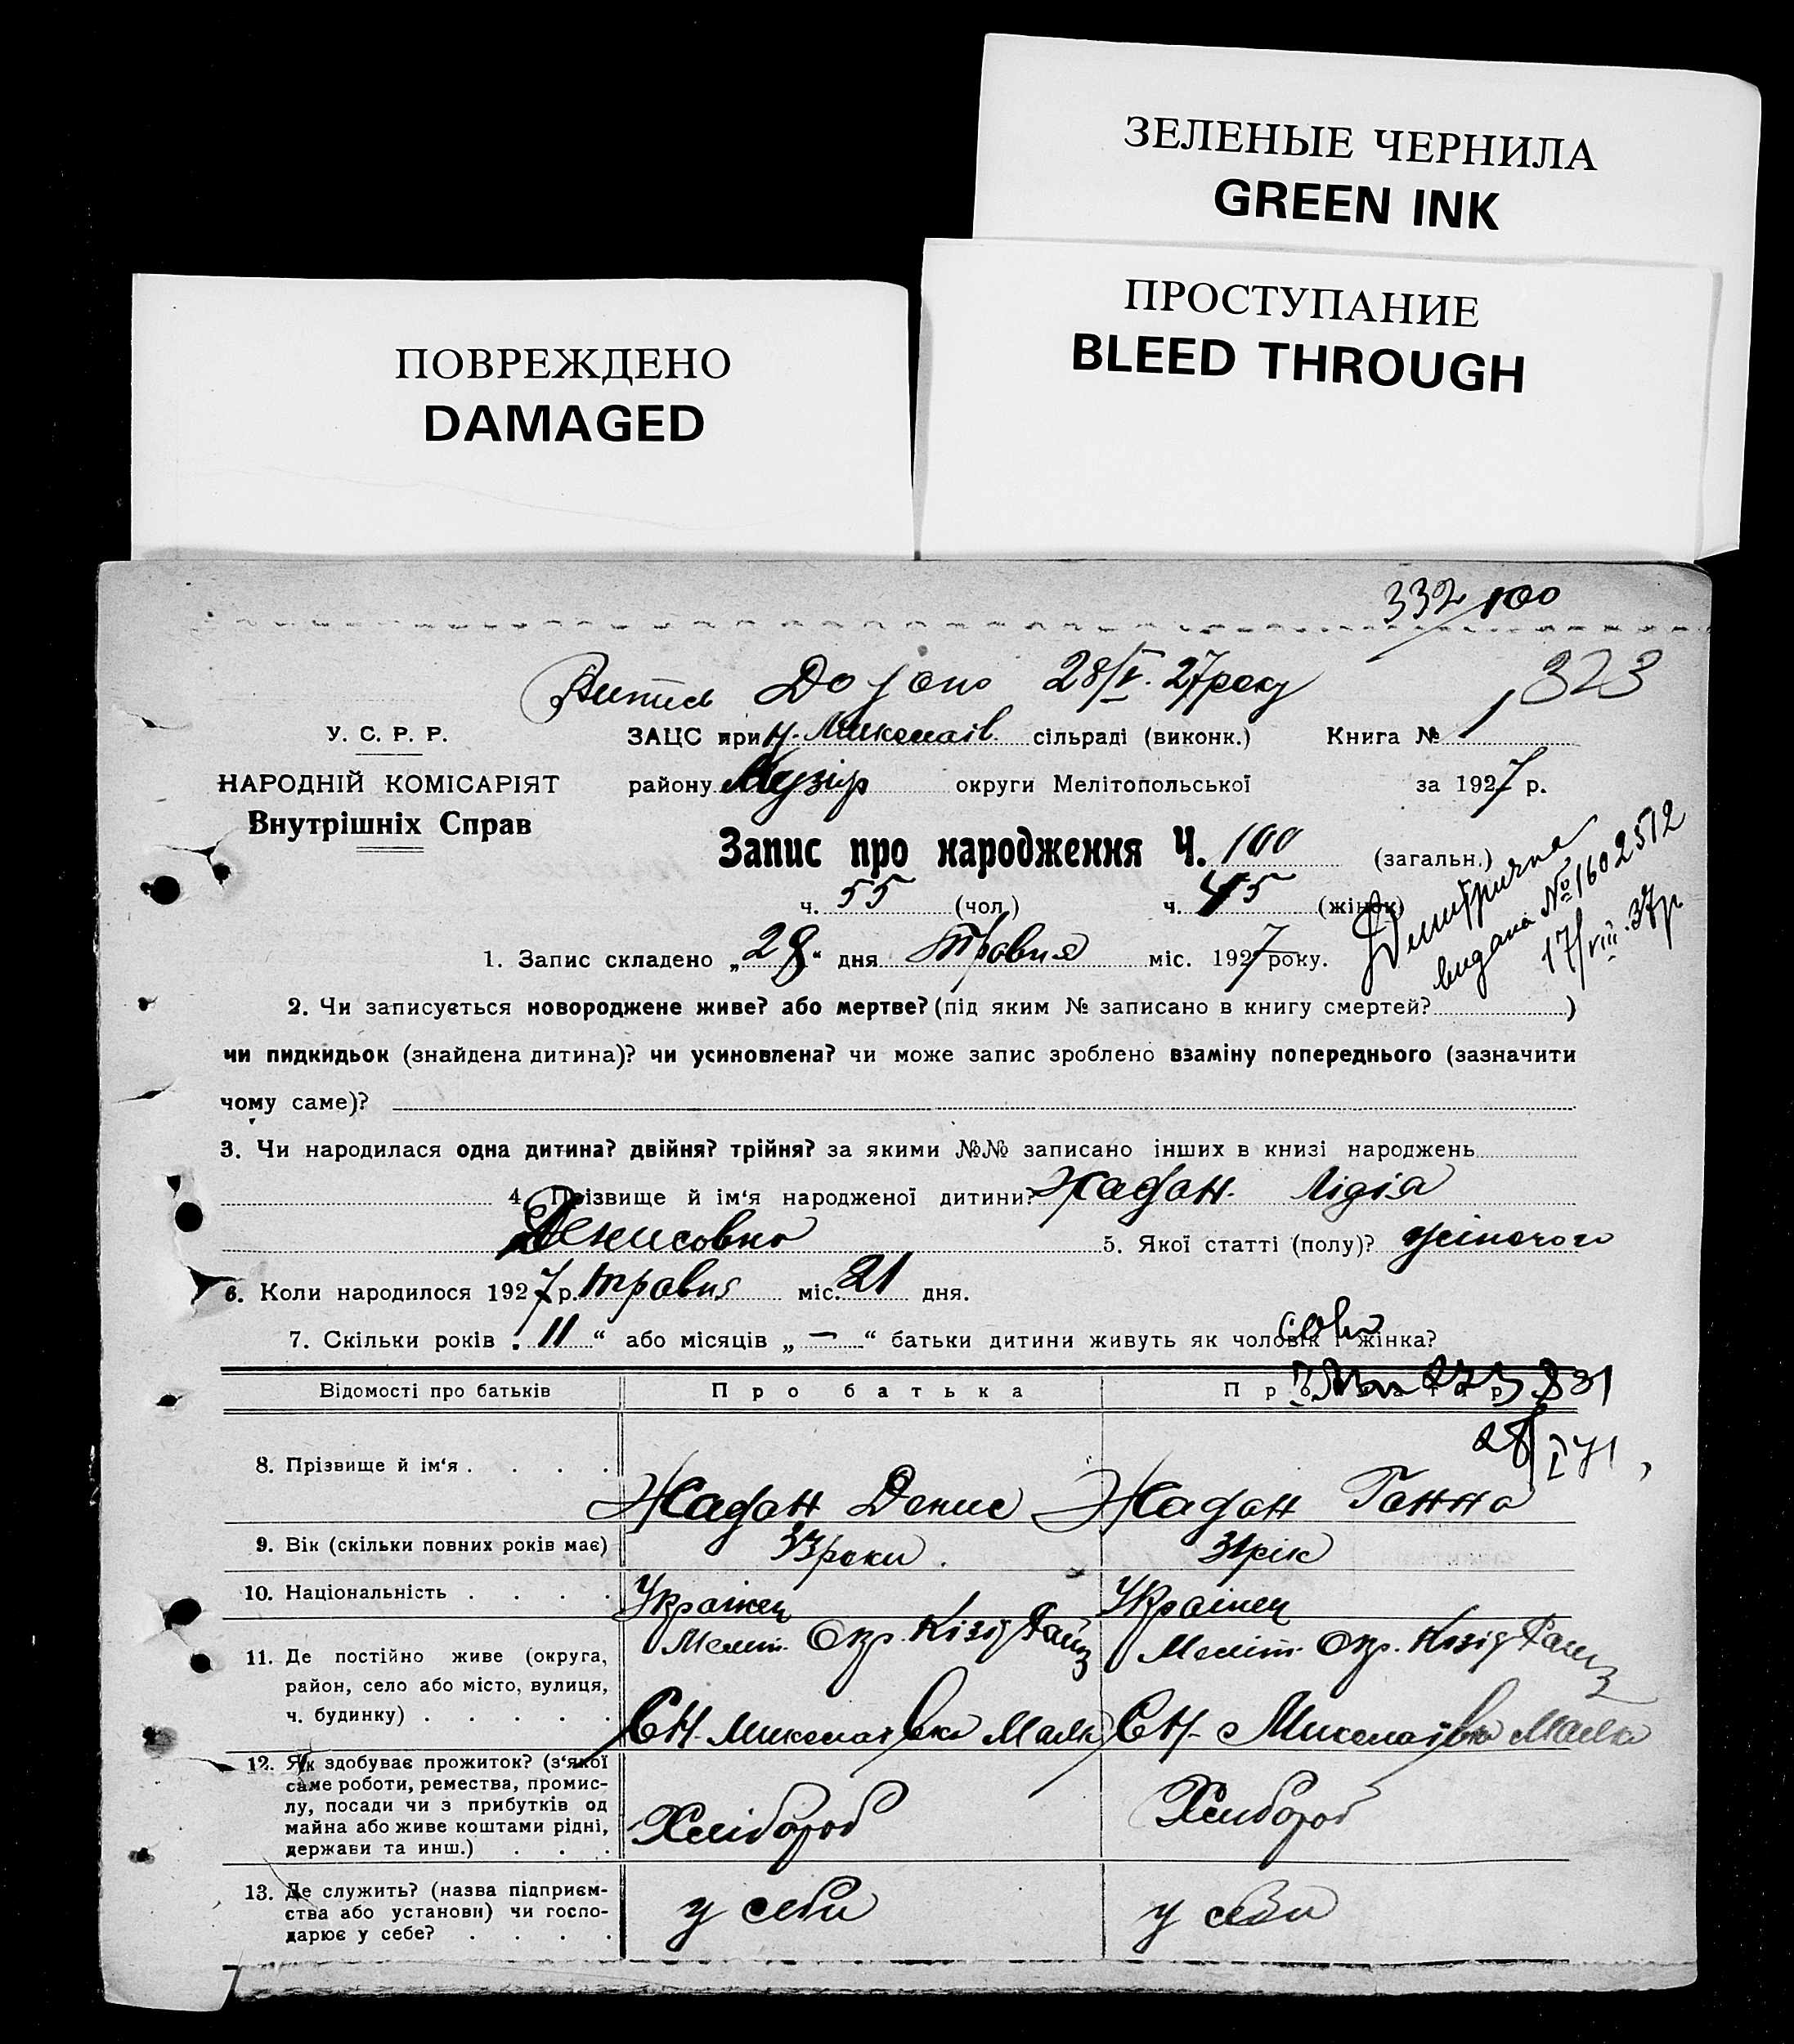 ЗЕЛЕНЫЕ ЧЕРНИЛА
GREEN INK
ПРОСТУПАНИЕ
BLEED THROUGH
ПОВРЕЖДЕНО
DAMAGED
332/100
28/V. 27 року
323
У. С. Р. Р.
ЗАЦС при Н. Миколаїв. сільраді (виконк.) Книга № 1
НАРОДНІЙ КОМІСАРІЯТ
району округи Мелітопольської за 1927 р.
Внутрішніх Справ
Запис про народження Ч. 100 (загальн.)
ч. 55 (чол.) ч. 45 (жінок)
видана № 1602512
17/VIII. 37р
1. Запис складено „28“ дня Травня міс. 1927 року.
2. Чи записується новороджене живе? або мертве? (під яким № записано в книгу смертей? )
чи пидкидьок (знайдена дитина)? чи усиновлена? чи може запис зроблено взаміну попереднього (зазначити
чому саме)?
3. Чи народилася одна дитина? двійня? трійня? за якими №№ записано інших в книзі народжень
4. Прізвище й ім'я народженої дитини? Жадан. Лідія
Денисовна 5. Якої статті (полу)? жіночого
6. Коли народилося 1927 р. травня міс. 21 дня.
7. Скільки років „11“ або місяців „—“ батьки дитини живуть як чоловік і жінка?
Відомості про батьків Про батька Про матір
8. Прізвище й ім'я . . . . Жадан Денис Жадан Ганна
9. Вік (скільки повних років має) 33 роки. 31 рік
10. Національність . . . . Українец Українец
11. Де постійно живе (округа, район, село або місто, вулиця, ч. будинку) . . . . . Меліт. Окр. Меліт. Окр.
СН. Миколаївка СН. Миколаївка
12. Як здобуває прожиток? (з'якої
саме роботи, ремества, промис-
лу, посади чи з прибутків од
майна або живе коштами рідні,
держави та инш.) . . . Хлібороб Хлибороб
13. Де служить? (назва підприєм-
ства або установи) чи госпо-
дарює у себе? . . . . у себи у себи